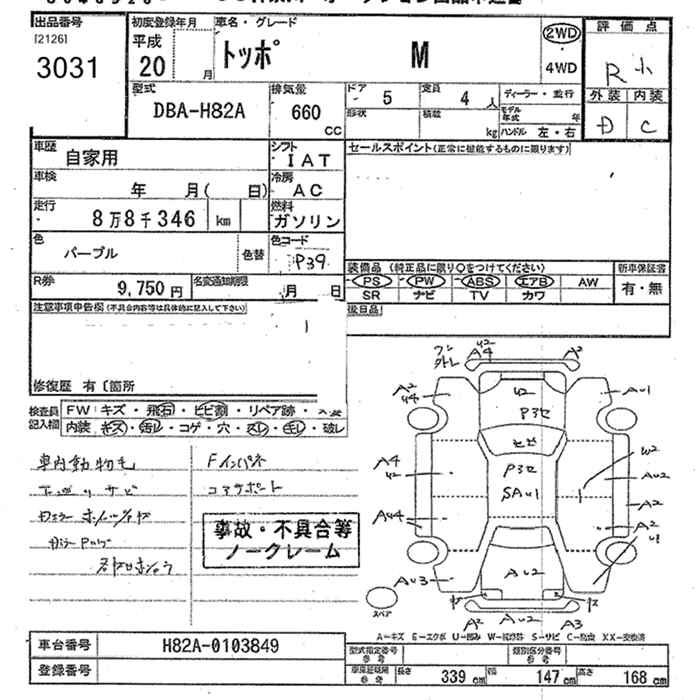 出品番号
[2126]
3031
初度登録年月
平成
20
月
車名・グレード
トッポ M
2WD
4WD
評価点
R
外装 内装
D C
型式
DBA-H82A
排気量
660
CC
ドア
5
定員
4 人
ディーラー・並行
形状
積載
kg
モデル年式
年
ハンドル 左・右
車歴
自家用
シフト
IAT
セールスポイント(正常に機能するものに限ります)
車検
年 月( 日)
冷房
AC
走行
8万8千346 km
燃料
ガソリン
色
パープル
色替
色コード
P39
装備品 (純正品に限り○をつけてください)
新車保証書
PS PW ABS エアB AW
有・無
SR ナビ TV カワ
R券
9,750 円
名変通知期限
月 日
注意事項申告欄(不具合内容等は具体的に記入して下さい)
後日品
修復歴 有〔箇所
検査員
記入欄
FW キズ・飛石・ヒビ割・リペア跡・
内装 キズ・汚レ・コゲ・穴・スレ・キレ・破レ
車内動物毛
Fインパネ
コアサポート
事故・不具合等
ノークレーム
A2
A4
U2
A2
A2
U4
AU1
U2
P3セ
ヒビ
P3セ
SAU1
A4
U2
W2
AU2
A2
AU4
A2
U1
AU3
AU2
AU2
A2
A3
スペア
A-キズ E-エクボ U-凹み S-サビ C-腐食 XX-交換済
車台番号
H82A-0103849
登録番号
型式指定番号
参考
類別区分番号
参考
参考
長さ
339 cm
幅
147 cm
高さ
168 cm